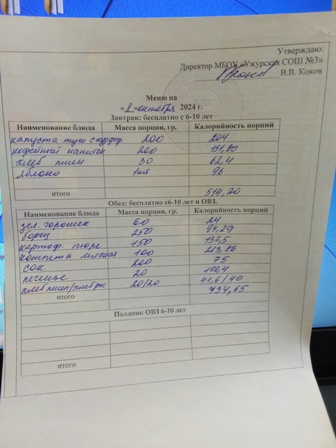 Утверждаю:
Директор МБОУ «Ужурская СОШ №3»
В.В. Коков
Меню на
«2» октября 2024 г.
Завтрак: бесплатно с 6-10 лет
Наименование блюда Масса порции, гр. Калорийность порций
капуста туш с 200 204
кофейный напиток 200 151,80
хлеб пшен 30 62,4
яблоко 1шт 96
итого 514,20
Обед: бесплатно с6-10 лет и ОВЗ.
Наименование блюда Масса порции, гр. Калорийность порций
зел горошек 60 24
борщ 250 94,29
картоф. пюре 150 137,5
котлета мясная 100 213,86
сок 200 75
печенье 20 104,4
хлеб пшен/хлеб рж 20/20 41,6/40
итого 734,65
Полдник ОВЗ 6-10 лет
итого